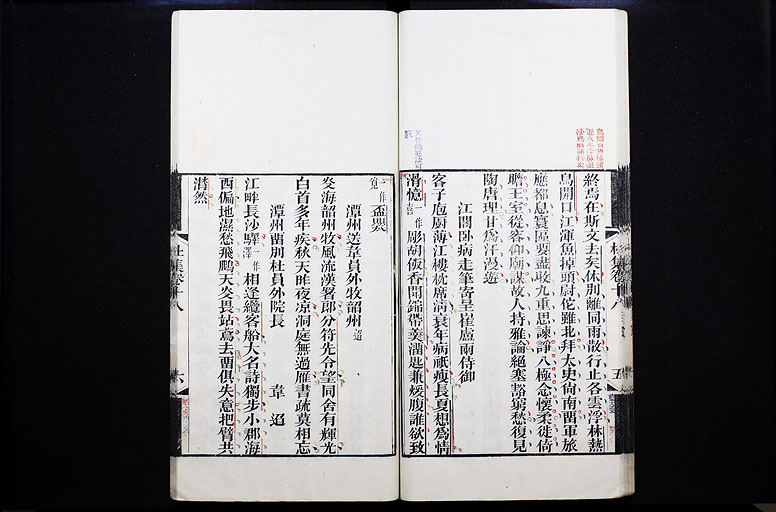 終焉在斯文去矣休別離同雨散行止各雲浮林熱
鳥開口江渾魚掉頭尉佗雖北拜太史尙南畱軍旅
應都息寰區要盡收九重思諫諍八極念懷柔徙倚
瞻王室從容仰廟謀故人持雅論絕塞豁窮愁復見
陶唐理甘爲汗漫遊
江閣臥病走筆寄呈崔盧兩侍御
客子庖厨薄江樓枕席淸衰年病祇瘦長夏想爲情
滑憶一作喜彫胡飯香聞錦帶羹溜匙兼煖腹誰欲致
一作覓盃罌
潭州送韋員外牧韶州迢
炎海韶州牧風流漢署郞分符先令望同舍有輝光
白首多年疾秋天昨夜涼洞庭無過雁書疏莫相忘
潭州畱別杜員外院長
韋迢
江畔長沙驛一作澤相逢纜客船大名詩獨步小郡海
西偏地濕愁飛鵩天炎畏跕鳶去畱俱失意把臂共
潸然
杜集卷十八
六
杜集卷十八
五